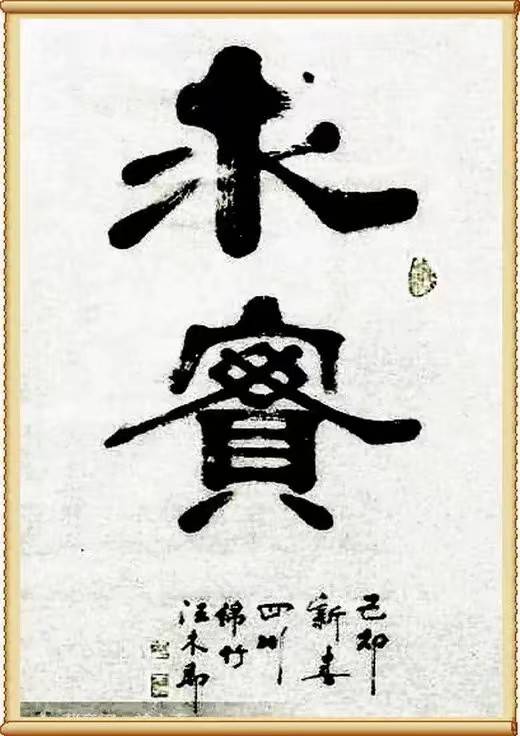 求
實
己卯
新春
四川
綿竹
汪木